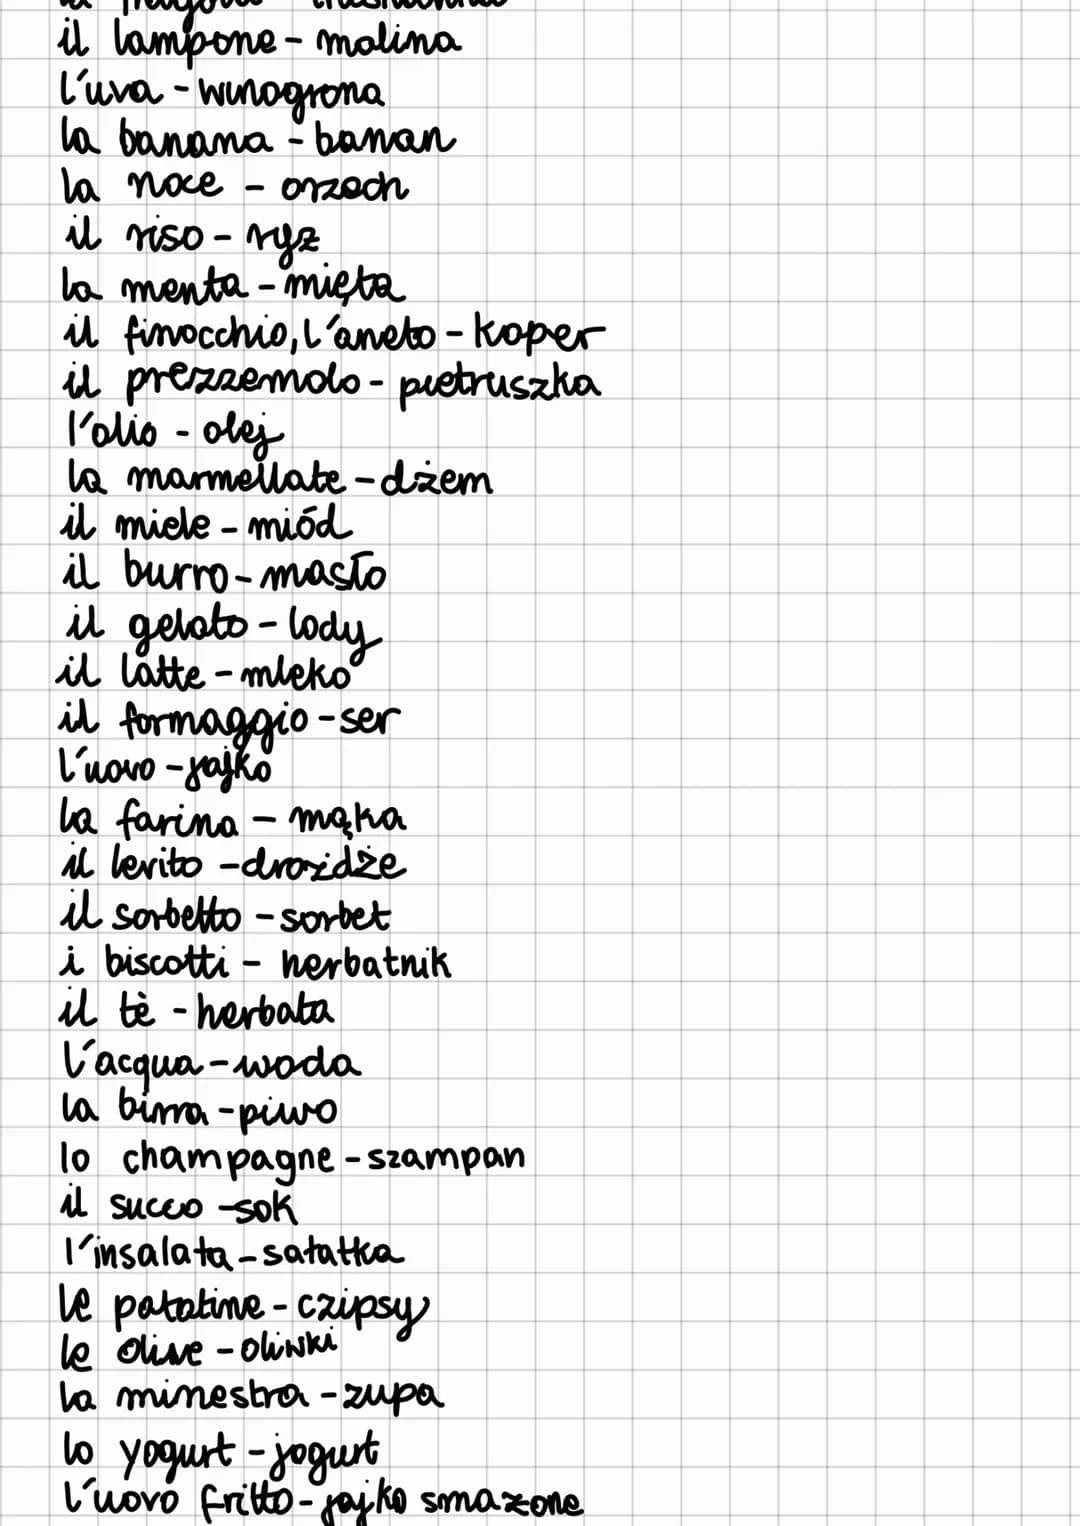 il lampone - malina
l'uva - winogrona
la banana - banan
la noce - orzech
il riso - ryz
la menta - mięta
il finocchio, l'aneto - koper
il prezzemolo - pietruszka
l'olio - olej
la marmellate - dżem
il miele - miód
il burro - masło
il gelato - lody
il latte - mleko
il formaggio - ser
l'uovo - jajko
la farina - mąka
il levito - drożdże
il sorbetto - sorbet
i biscotti - herbatnik
il tè - herbata
l'acqua - woda
la birra - piwo
lo champagne - szampan
il succo - sok
l'insalata - sałatka
le patatine - czipsy
le olive - oliwki
la minestra - zupa
lo yogurt - jogurt
l'uovo fritto - jajko smażone